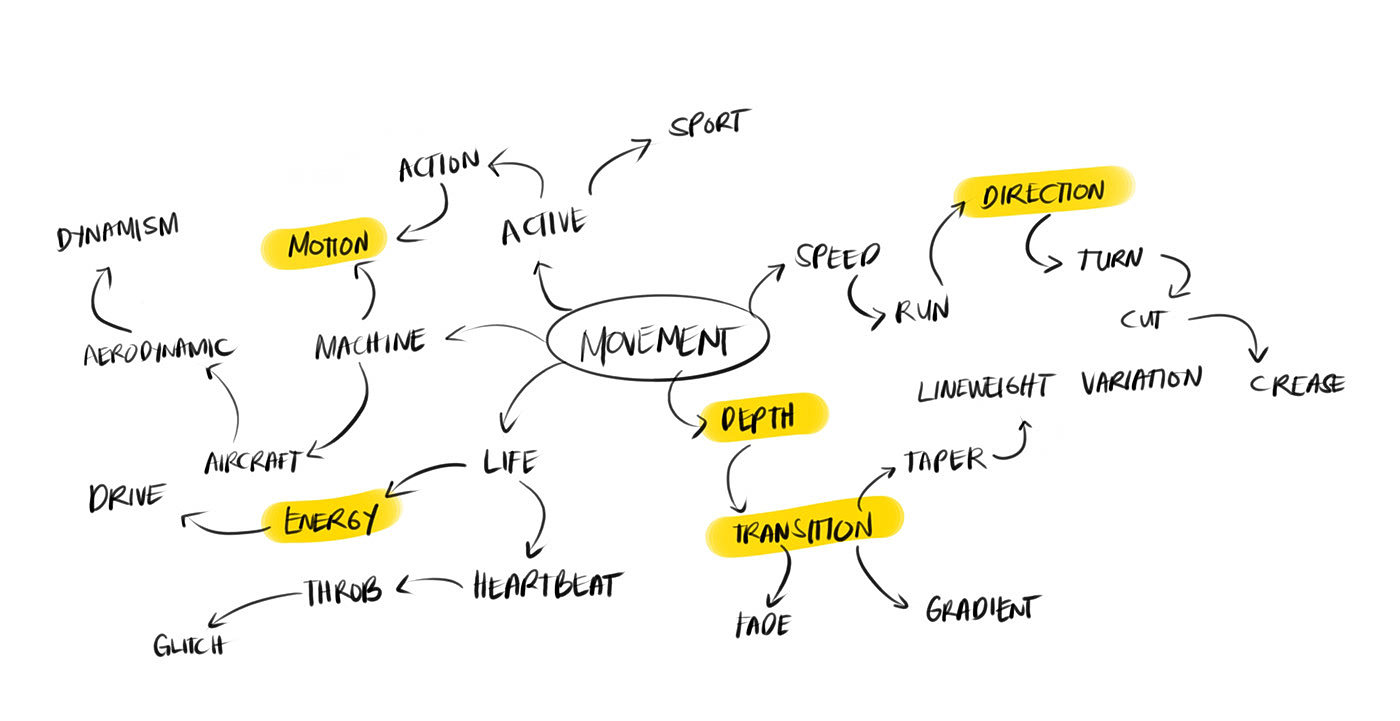 SPORT
ACTION
DIRECTION
DYNAMISM
MOTION
ACTIVE
SPEED
TURN
RUN
CUT
AERODYNAMIC
MACHINE
MOVEMENT
LINEWEIGHT VARIATION
CREASE
DEPTH
AIRCRAFT
LIFE
TAPER
DRIVE
ENERGY
TRANSITION
THROB
HEARTBEAT
FADE
GRADIENT
GLITCH